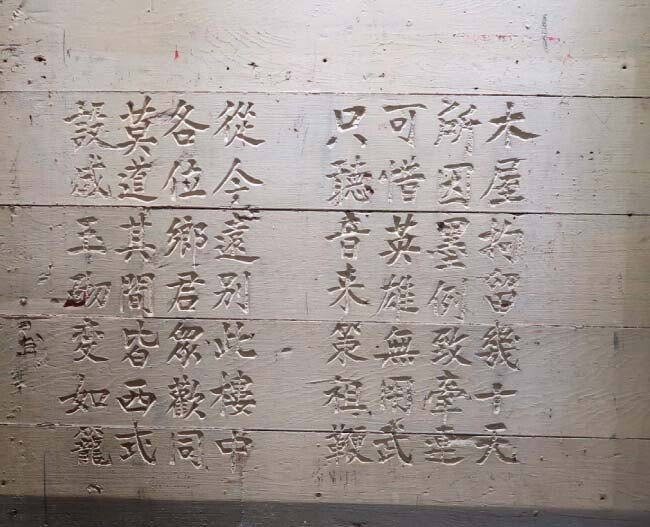 木屋拘留幾十天
所囚墨例致牽連
可惜英雄無用武
只聽音来策祖鞭
從今遠別此樓中
各位鄉君眾歡同
莫道其間皆西式
設成玉砌變如籠